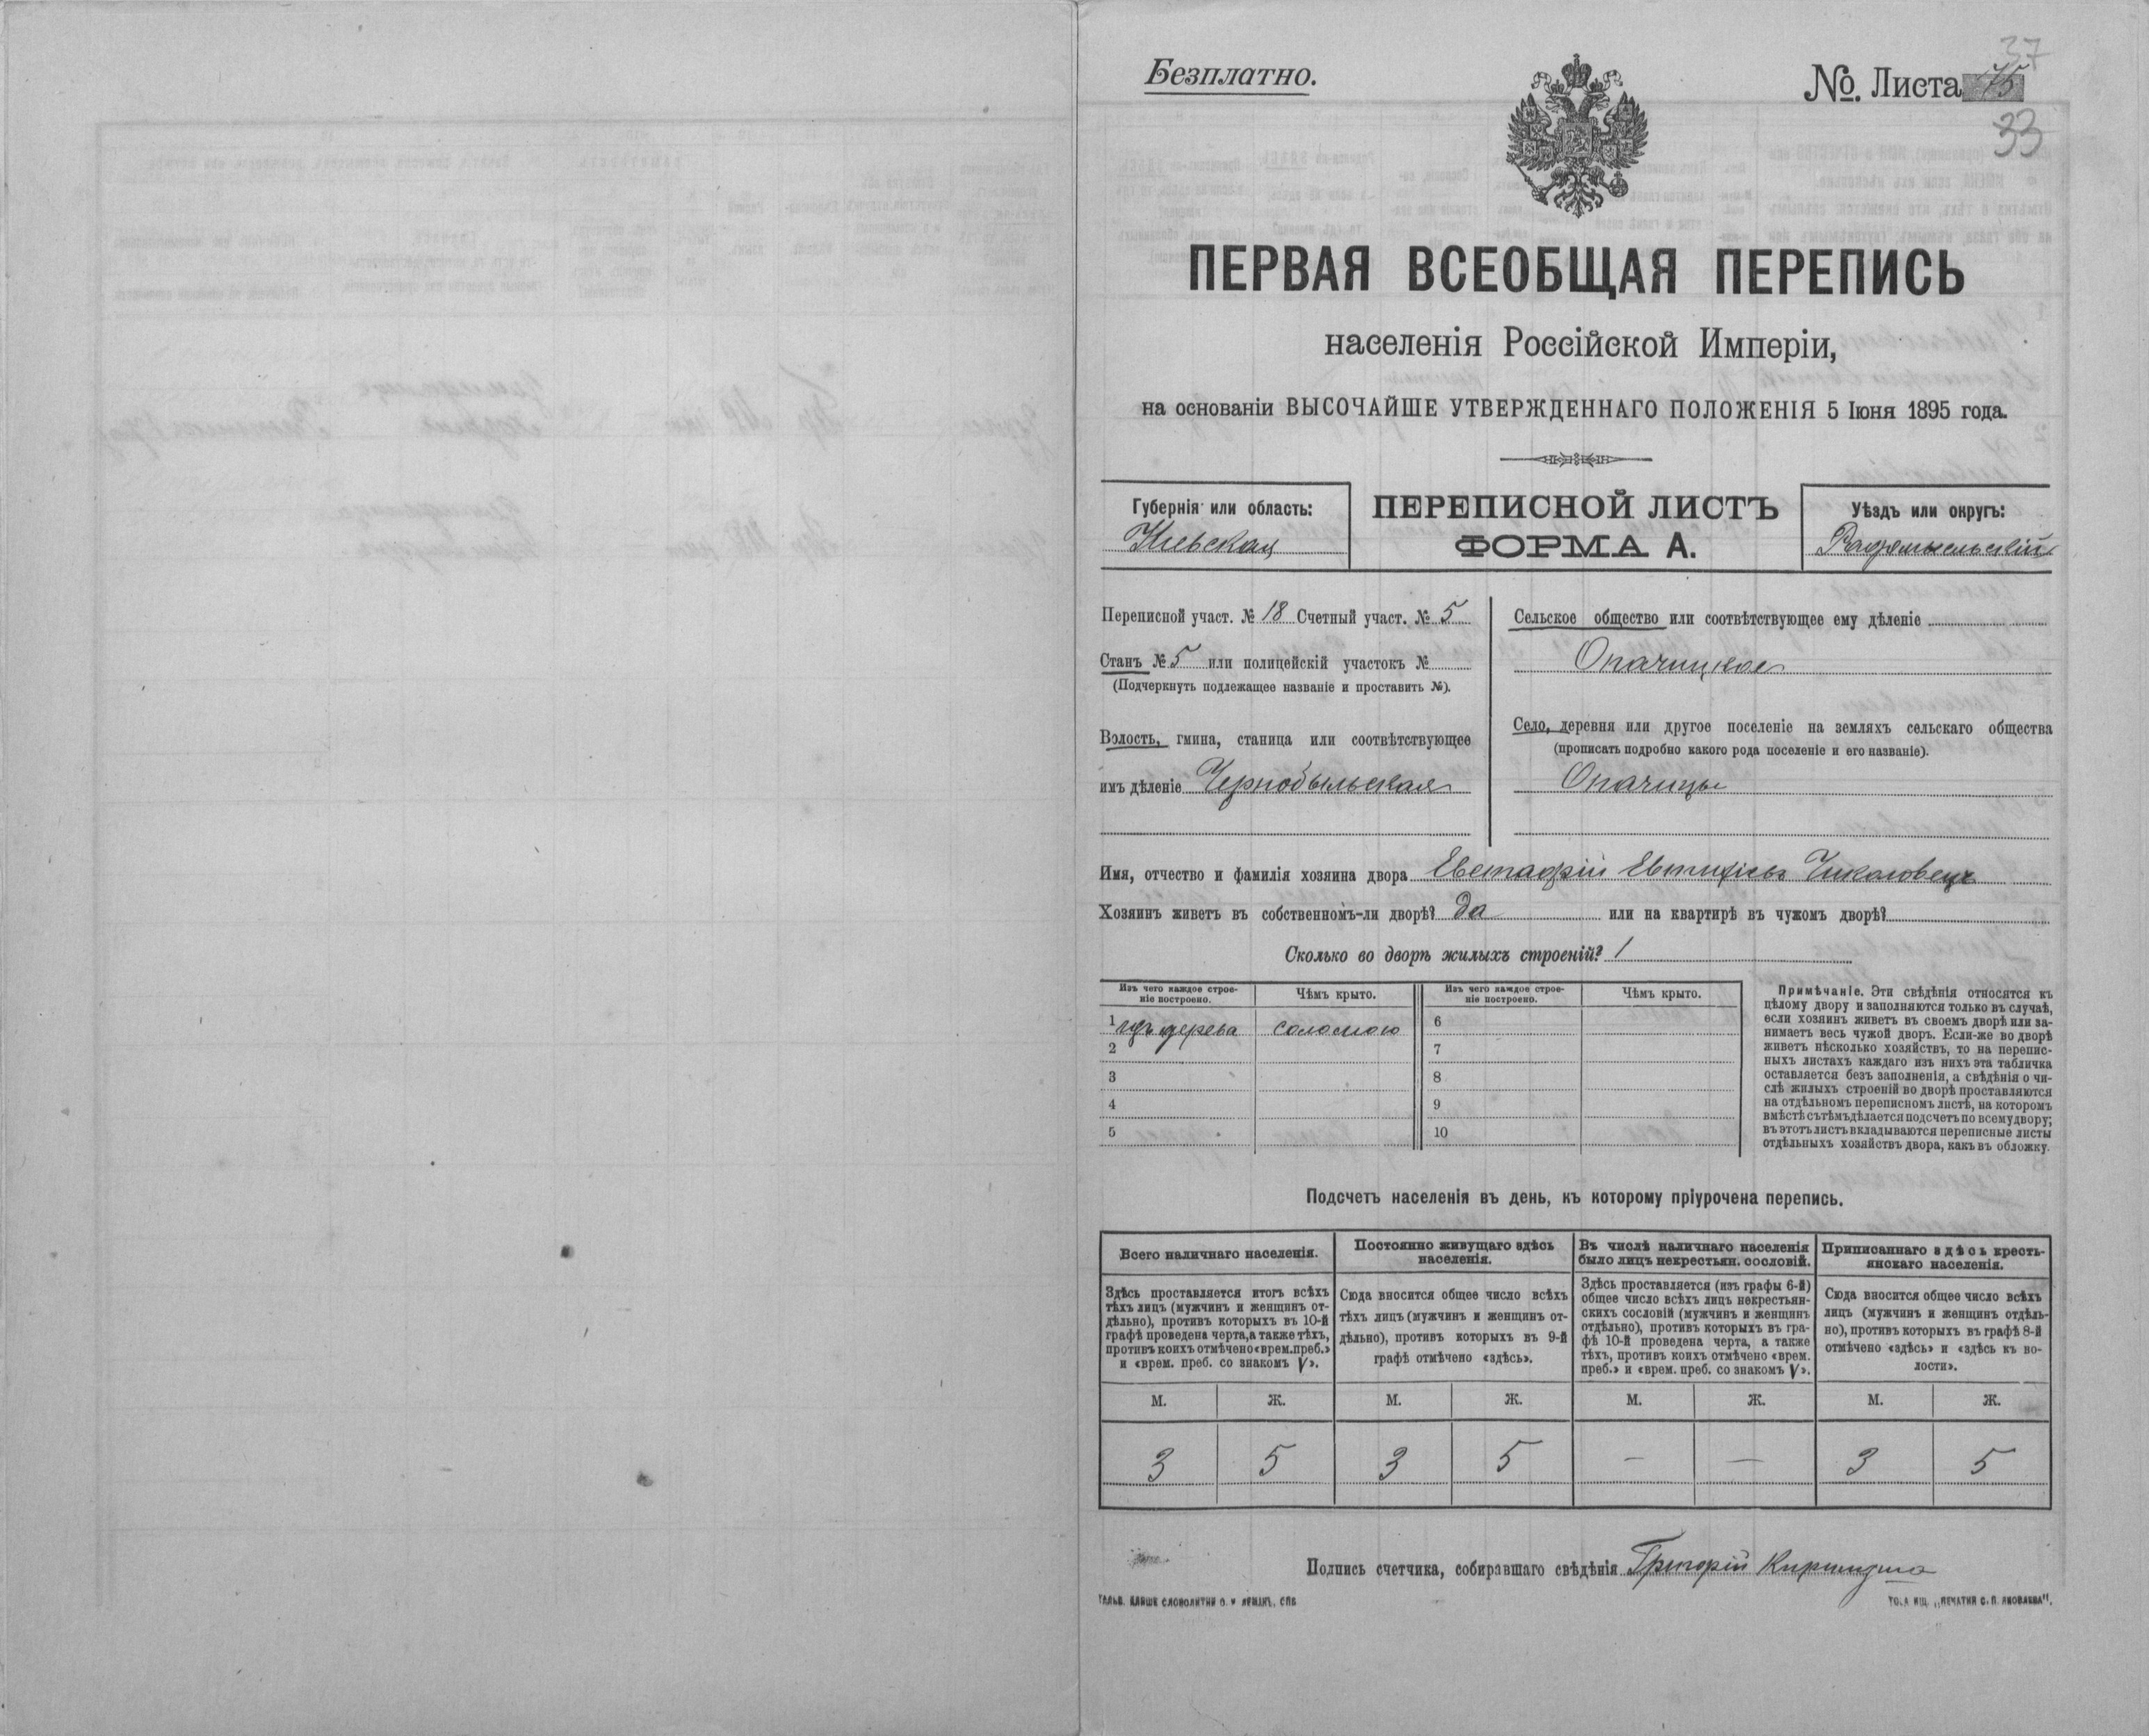 Безплатно.
№. Листа 75
37
33
ПЕРВАЯ ВСЕОБЩАЯ ПЕРЕПИСЬ
населенія Россійской Имперіи,
на основаніи ВЫСОЧАЙШЕ УТВЕРЖДЕННАГО ПОЛОЖЕНІЯ 5 Іюня 1895 года.
Губернія или область:
Кіевская
ПЕРЕПИСНОЙ ЛИСТЪ
ФОРМА А.
Уѣздъ или округъ:
Радомысльскій
Переписной участ. № 18 Счетный участ. № 5
Станъ № 5 или полицейскій участокъ №
(Подчеркнуть подлежащее названіе и проставить №).
Волость, гмина, станица или соотвѣтствующее
имъ дѣленіе Чернобыльская
Сельское общество или соотвѣтствующее ему дѣленіе
Опачицкое
Село, деревня или другое поселеніе на земляхъ сельскаго общества
(прописать подробно какого рода поселеніе и его названіе).
Опачицы
Имя, отчество и фамилія хозяина двора Евстафій Евтихіевъ Чикаловецъ
Хозяинъ живетъ въ собственномъ-ли дворѣ? да или на квартирѣ въ чужомъ дворѣ?
Сколько во дворѣ жилыхъ строеній? 1
Изъ чего каждое строе-
ніе построено.
Чѣмъ крыто.
Изъ чего каждое строе-
ніе построено.
Чѣмъ крыто.
1 изъ дерева соломою 6
2 7
3 8
4 9
5 10
Примѣчаніе. Эти свѣдѣнія относятся къ
цѣлому двору и заполняются только въ случаѣ,
если хозяинъ живетъ въ своемъ дворѣ или за-
нимаетъ весь чужой дворъ. Если-же во дворѣ
живетъ нѣсколько хозяйствъ, то на перепис-
ныхъ листахъ каждаго изъ нихъ эта табличка
оставляется безъ заполненія, а свѣдѣнія о чи-
слѣ жилыхъ строеній во дворѣ проставляются
на отдѣльномъ переписномъ листѣ, на которомъ
вмѣстѣ съ тѣмъ дѣлается подсчетъ по всему двору;
въ этотъ листъ вкладываются переписные листы
отдѣльныхъ хозяйствъ двора, какъ въ обложку.
Подсчетъ населенія въ день, къ которому пріурочена перепись.
Всего наличнаго населенія.
Здѣсь проставляется итогъ всѣхъ
тѣхъ лицъ (мужчинъ и женщинъ от-
дѣльно), противъ которыхъ въ 10-й
графѣ проведена черта, а также тѣхъ,
противъ коихъ отмѣчено «врем. преб.»
и «врем. преб. со знакомъ V».
Постоянно живущаго здѣсь
населенія.
Сюда вносится общее число всѣхъ
тѣхъ лицъ (мужчинъ и женщинъ от-
дѣльно), противъ которыхъ въ 9-й
графѣ отмѣчено «здѣсь».
Въ числѣ наличнаго населенія
было лицъ некрестьян. сословій.
Здѣсь проставляется (изъ графы 6-й)
общее число всѣхъ лицъ некрестьян-
скихъ сословій (мужчинъ и женщинъ
отдѣльно), противъ которыхъ въ гра-
фѣ 10-й проведена черта, а также
тѣхъ, противъ коихъ отмѣчено «врем.
преб.» и «врем. преб. со знакомъ V».
Приписаннаго здѣсь кресть-
янскаго населенія.
Сюда вносится общее число всѣхъ
лицъ (мужчинъ и женщинъ отдѣль-
но), противъ которыхъ въ графѣ 8-й
отмѣчено «здѣсь» и «здѣсь къ во-
лости».
М. Ж. М. Ж. М. Ж. М. Ж.
3 5 3 5 — — 3 5
Подпись счетчика, собиравшаго свѣдѣнія Григорій